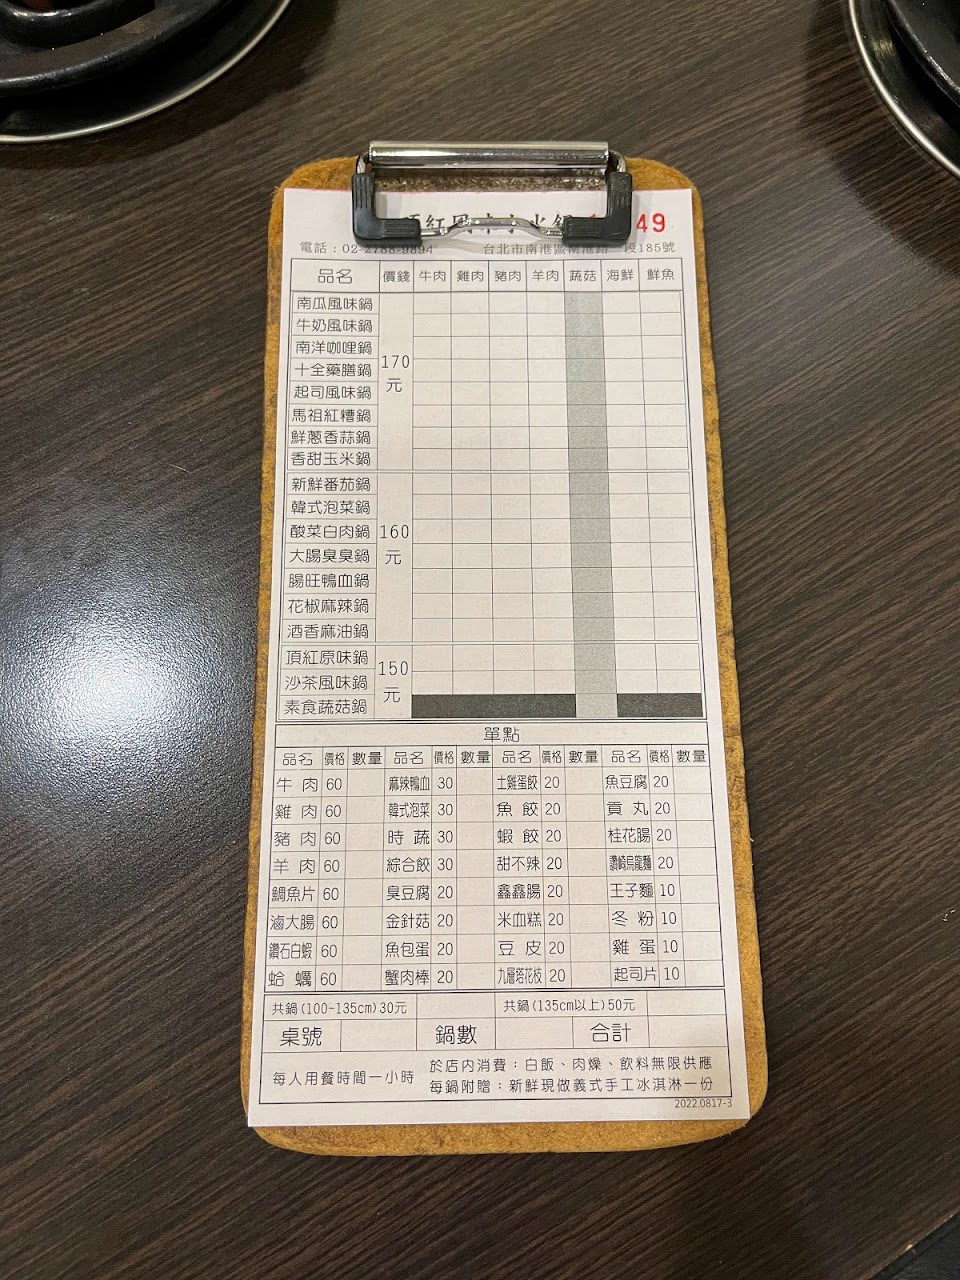 49
電話：02-2788-9894 台北市南港區南港路一段185號
品名 價錢 牛肉 雞肉 豬肉 羊肉 蔬菇 海鮮 鮮魚
南瓜風味鍋
牛奶風味鍋
南洋咖哩鍋
十全藥膳鍋
起司風味鍋
馬祖紅糟鍋
鮮蔥香蒜鍋
香甜玉米鍋
170
元
新鮮番茄鍋
韓式泡菜鍋
酸菜白肉鍋
大腸臭臭鍋
腸旺鴨血鍋
花椒麻辣鍋
酒香麻油鍋
160
元
頂紅原味鍋
沙茶風味鍋
素食蔬菇鍋
150
元
單點
品名 價格 數量 品名 價格 數量 品名 價格 數量 品名 價格 數量
牛肉 60 麻辣鴨血 30 土雞蛋餃 20 魚豆腐 20
雞肉 60 韓式泡菜 30 魚餃 20 貢丸 20
豬肉 60 時蔬 30 蝦餃 20 桂花腸 20
羊肉 60 綜合餃 30 甜不辣 20 讚岐烏龍麵 20
鯛魚片 60 臭豆腐 20 鑫鑫腸 20 王子麵 10
滷大腸 60 金針菇 20 米血糕 20 冬粉 10
鑽石白蝦 60 魚包蛋 20 豆皮 20 雞蛋 10
蛤蠣 60 蟹肉棒 20 九層塔花枝 20 起司片 10
共鍋(100-135cm)30元 共鍋(135cm以上)50元
桌號 鍋數 合計
每人用餐時間一小時
於店內消費：白飯、肉燥、飲料無限供應
每鍋附贈：新鮮現做義式手工冰淇淋一份
2022.0817-3